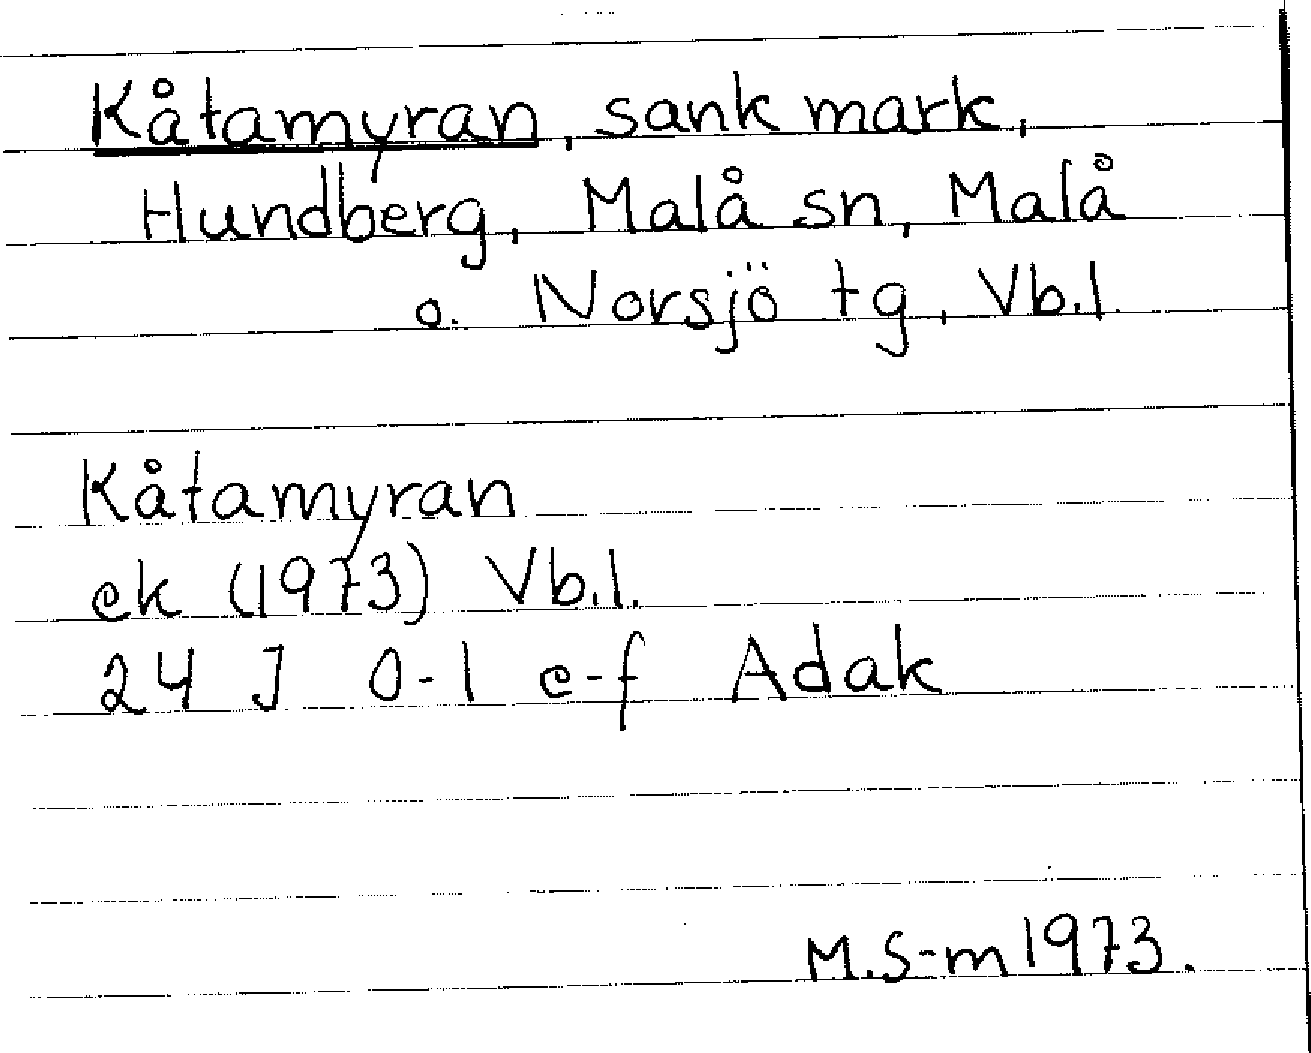 Kåtamyran, sank mark,
Hundberg, Malå sn, Malå
o. Norsjö tg, Vb.l.
Kåtamyran
ek (1973) Vb.l.
24 J 0-1 e-f Adak
M.S-m 1973.